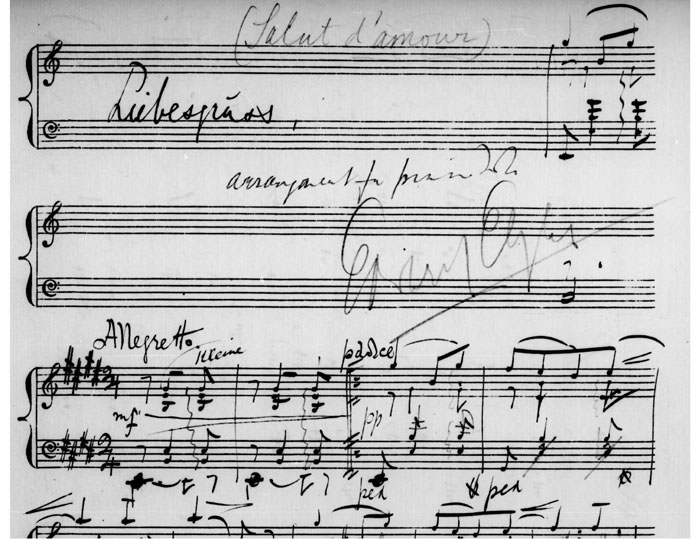 (Salut d'amour)
Liebesgruss,
arrangement for piano
Edward Elgar
Allegretto.
p dolce
mf
pp
ped
ped